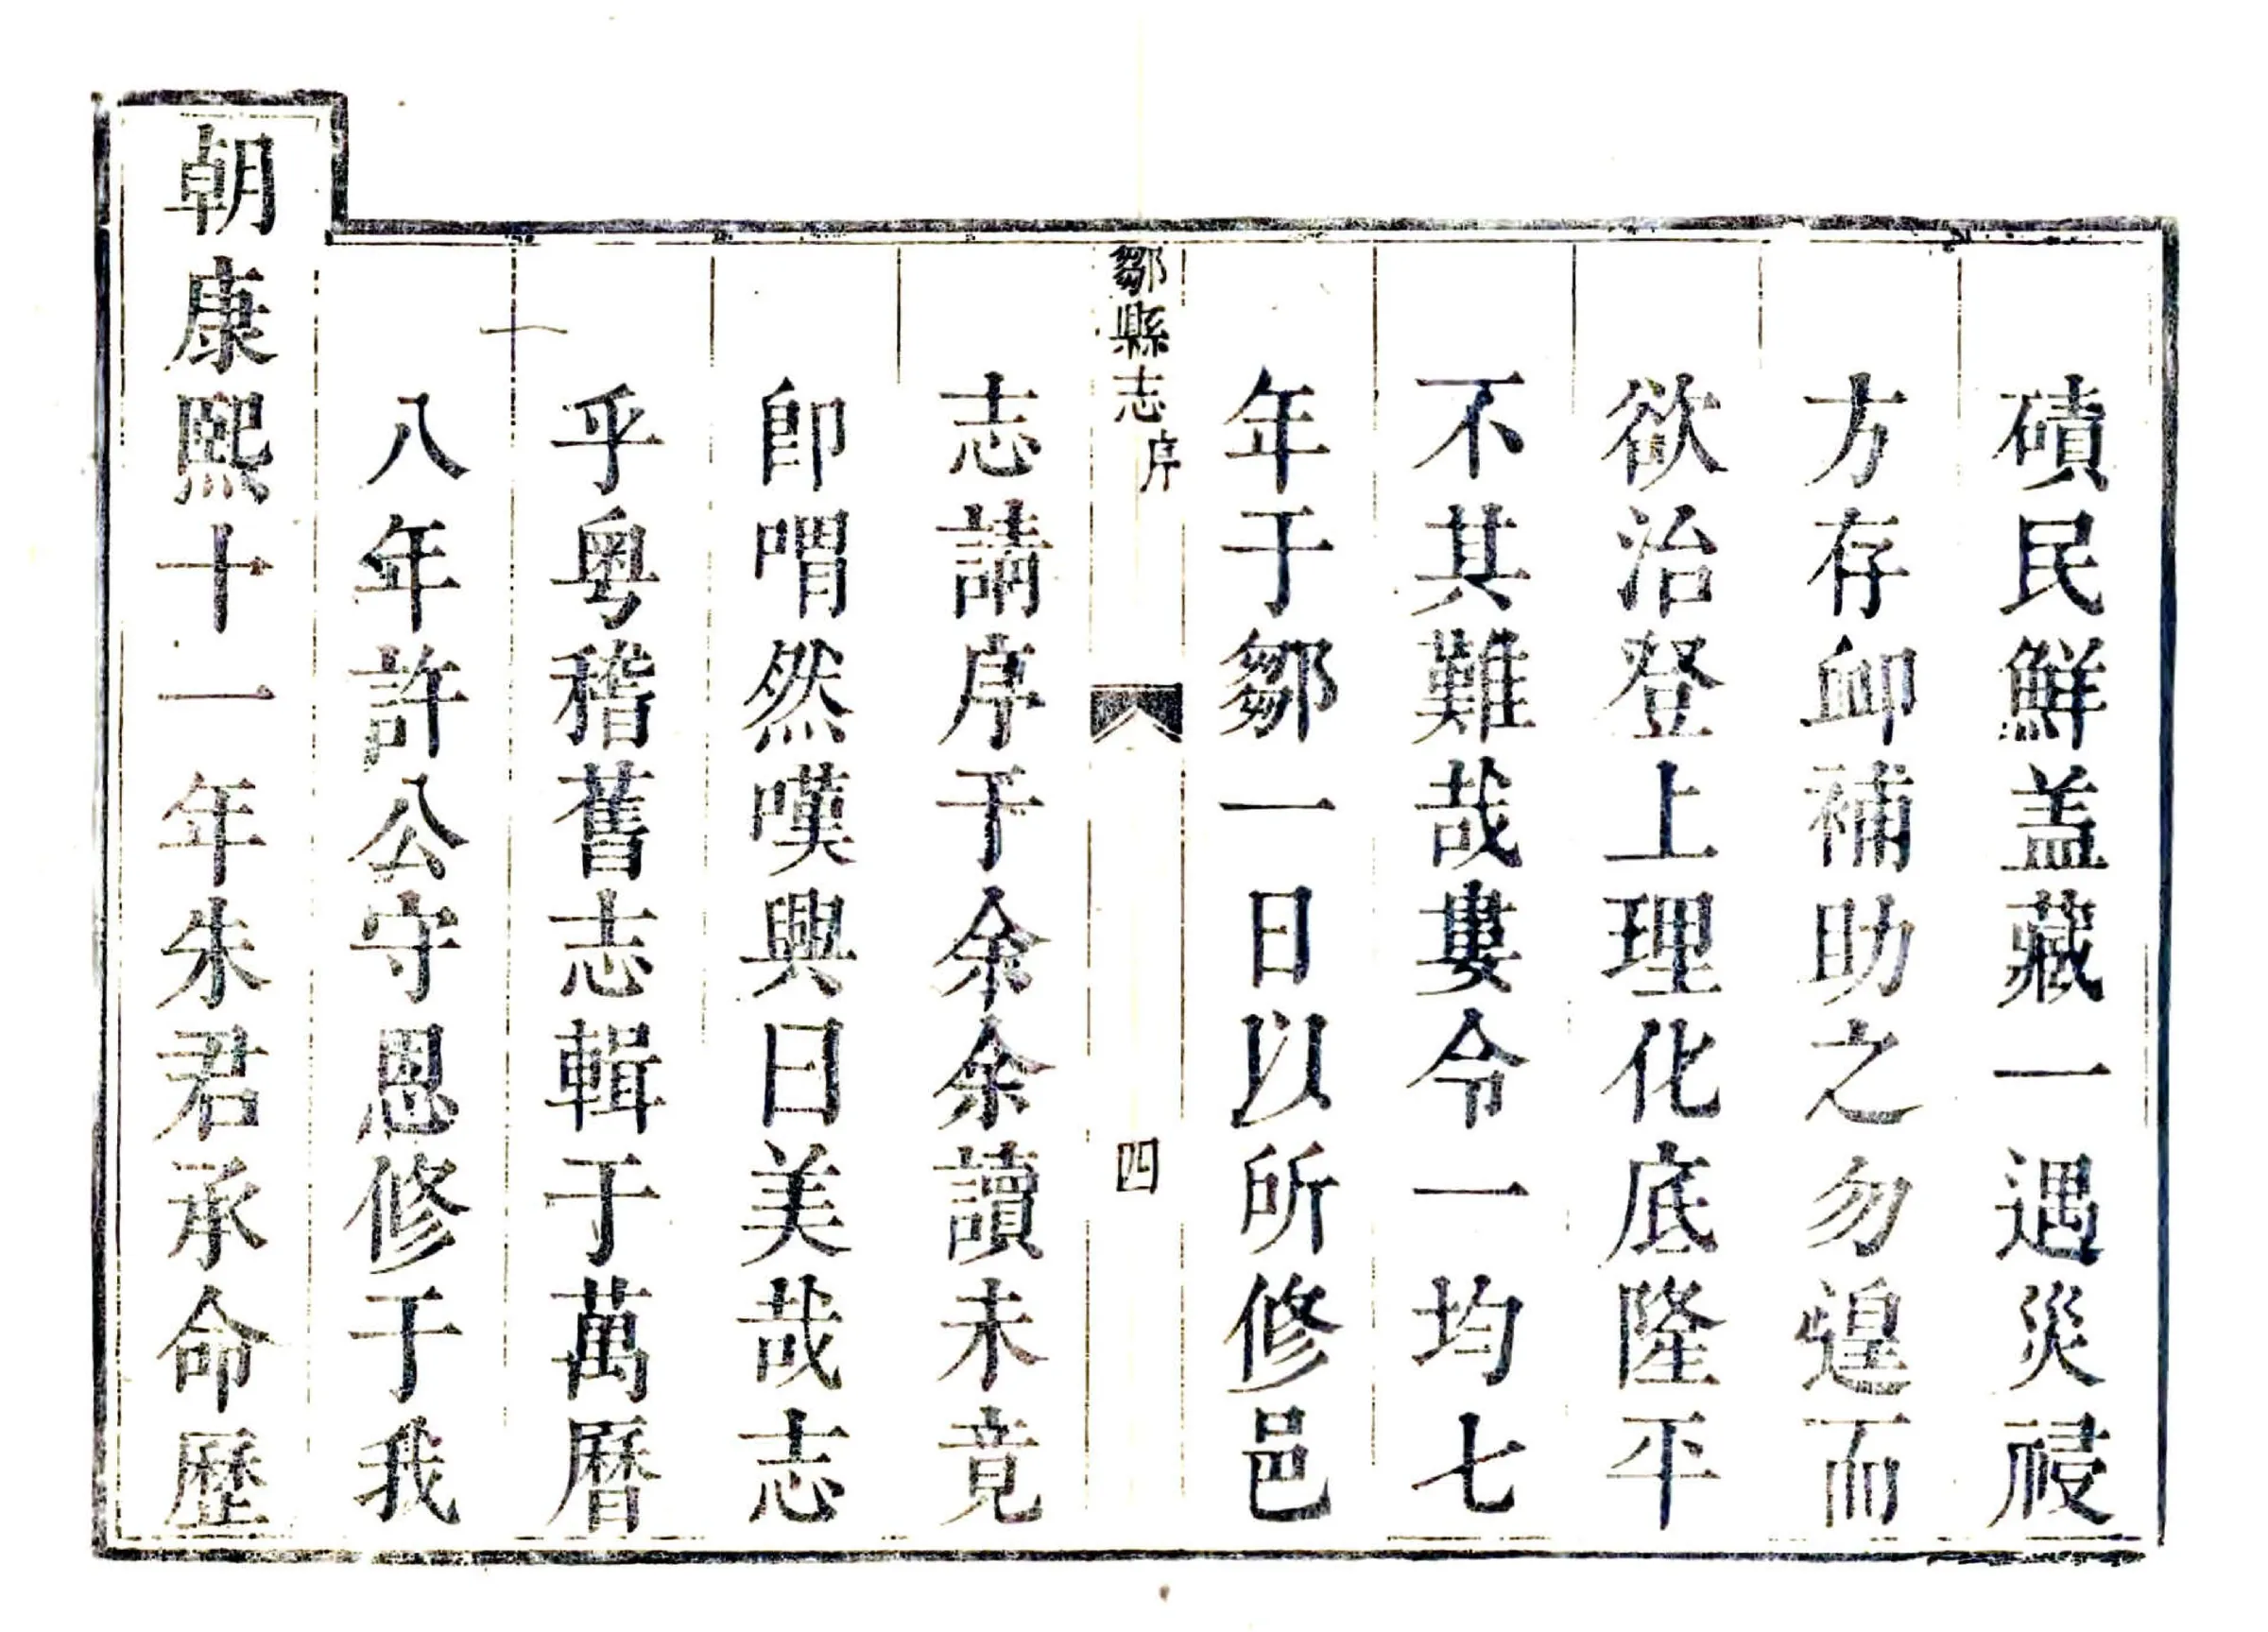 磧民鮮盖藏一遇災祲
方存卹補助之勿遑而
欲治登上理化底隆平
不其難哉婁令一均七
年于鄒一日以所修邑
鄒縣志序 四
志請序于余余讀未竟
即喟然嘆興曰美哉志
乎粤稽舊志輯于萬曆
八年許公守恩修于我
朝康熙十一年朱君承命歷